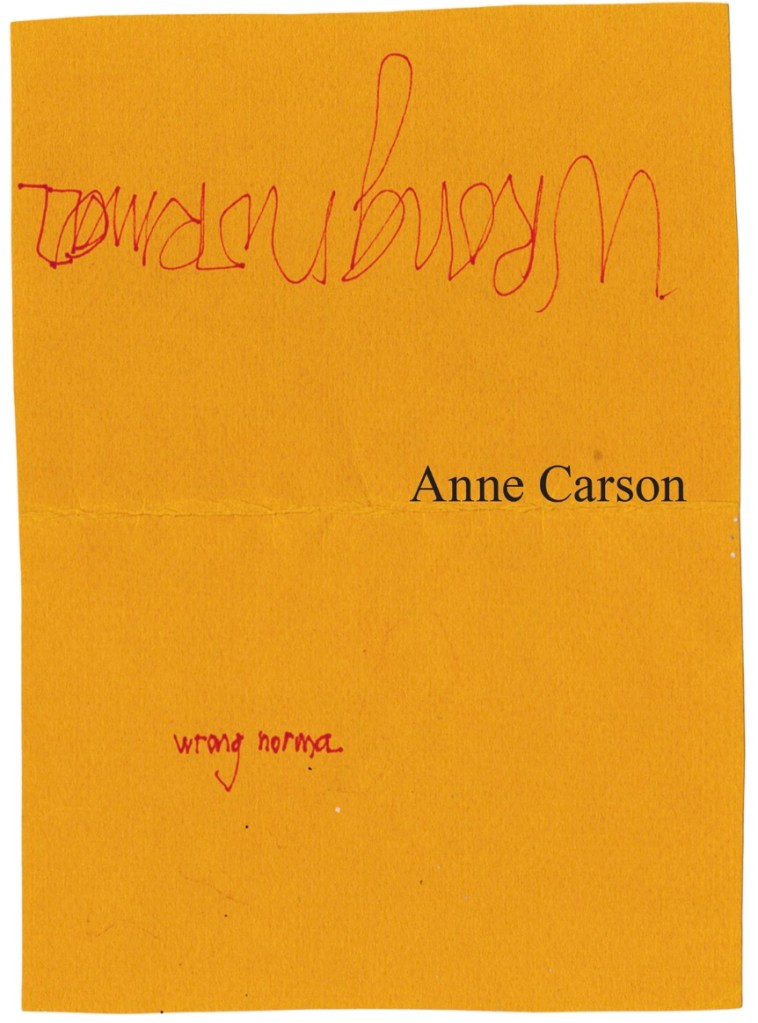 wrong norma
Anne Carson
wrong norma